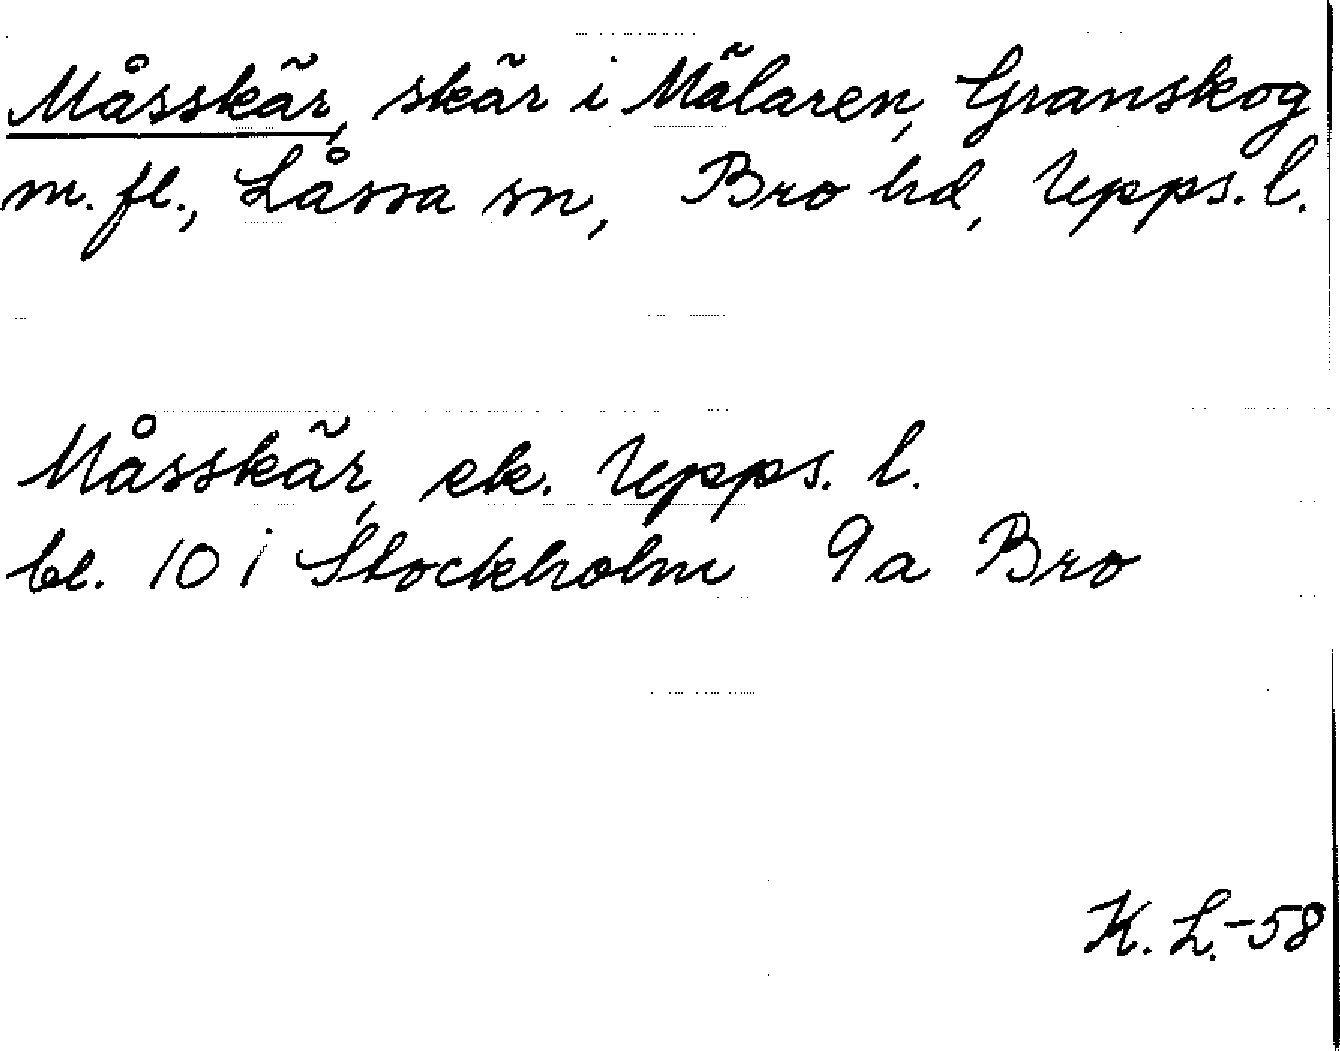 Måsskär, skär i Mälaren, Granskog
m. fl., Låssa sn, Bro hd, Upps. l.
Måsskär, ek. Upps. l.
bl. 10 i Stockholm 9a Bro
K. L.-58